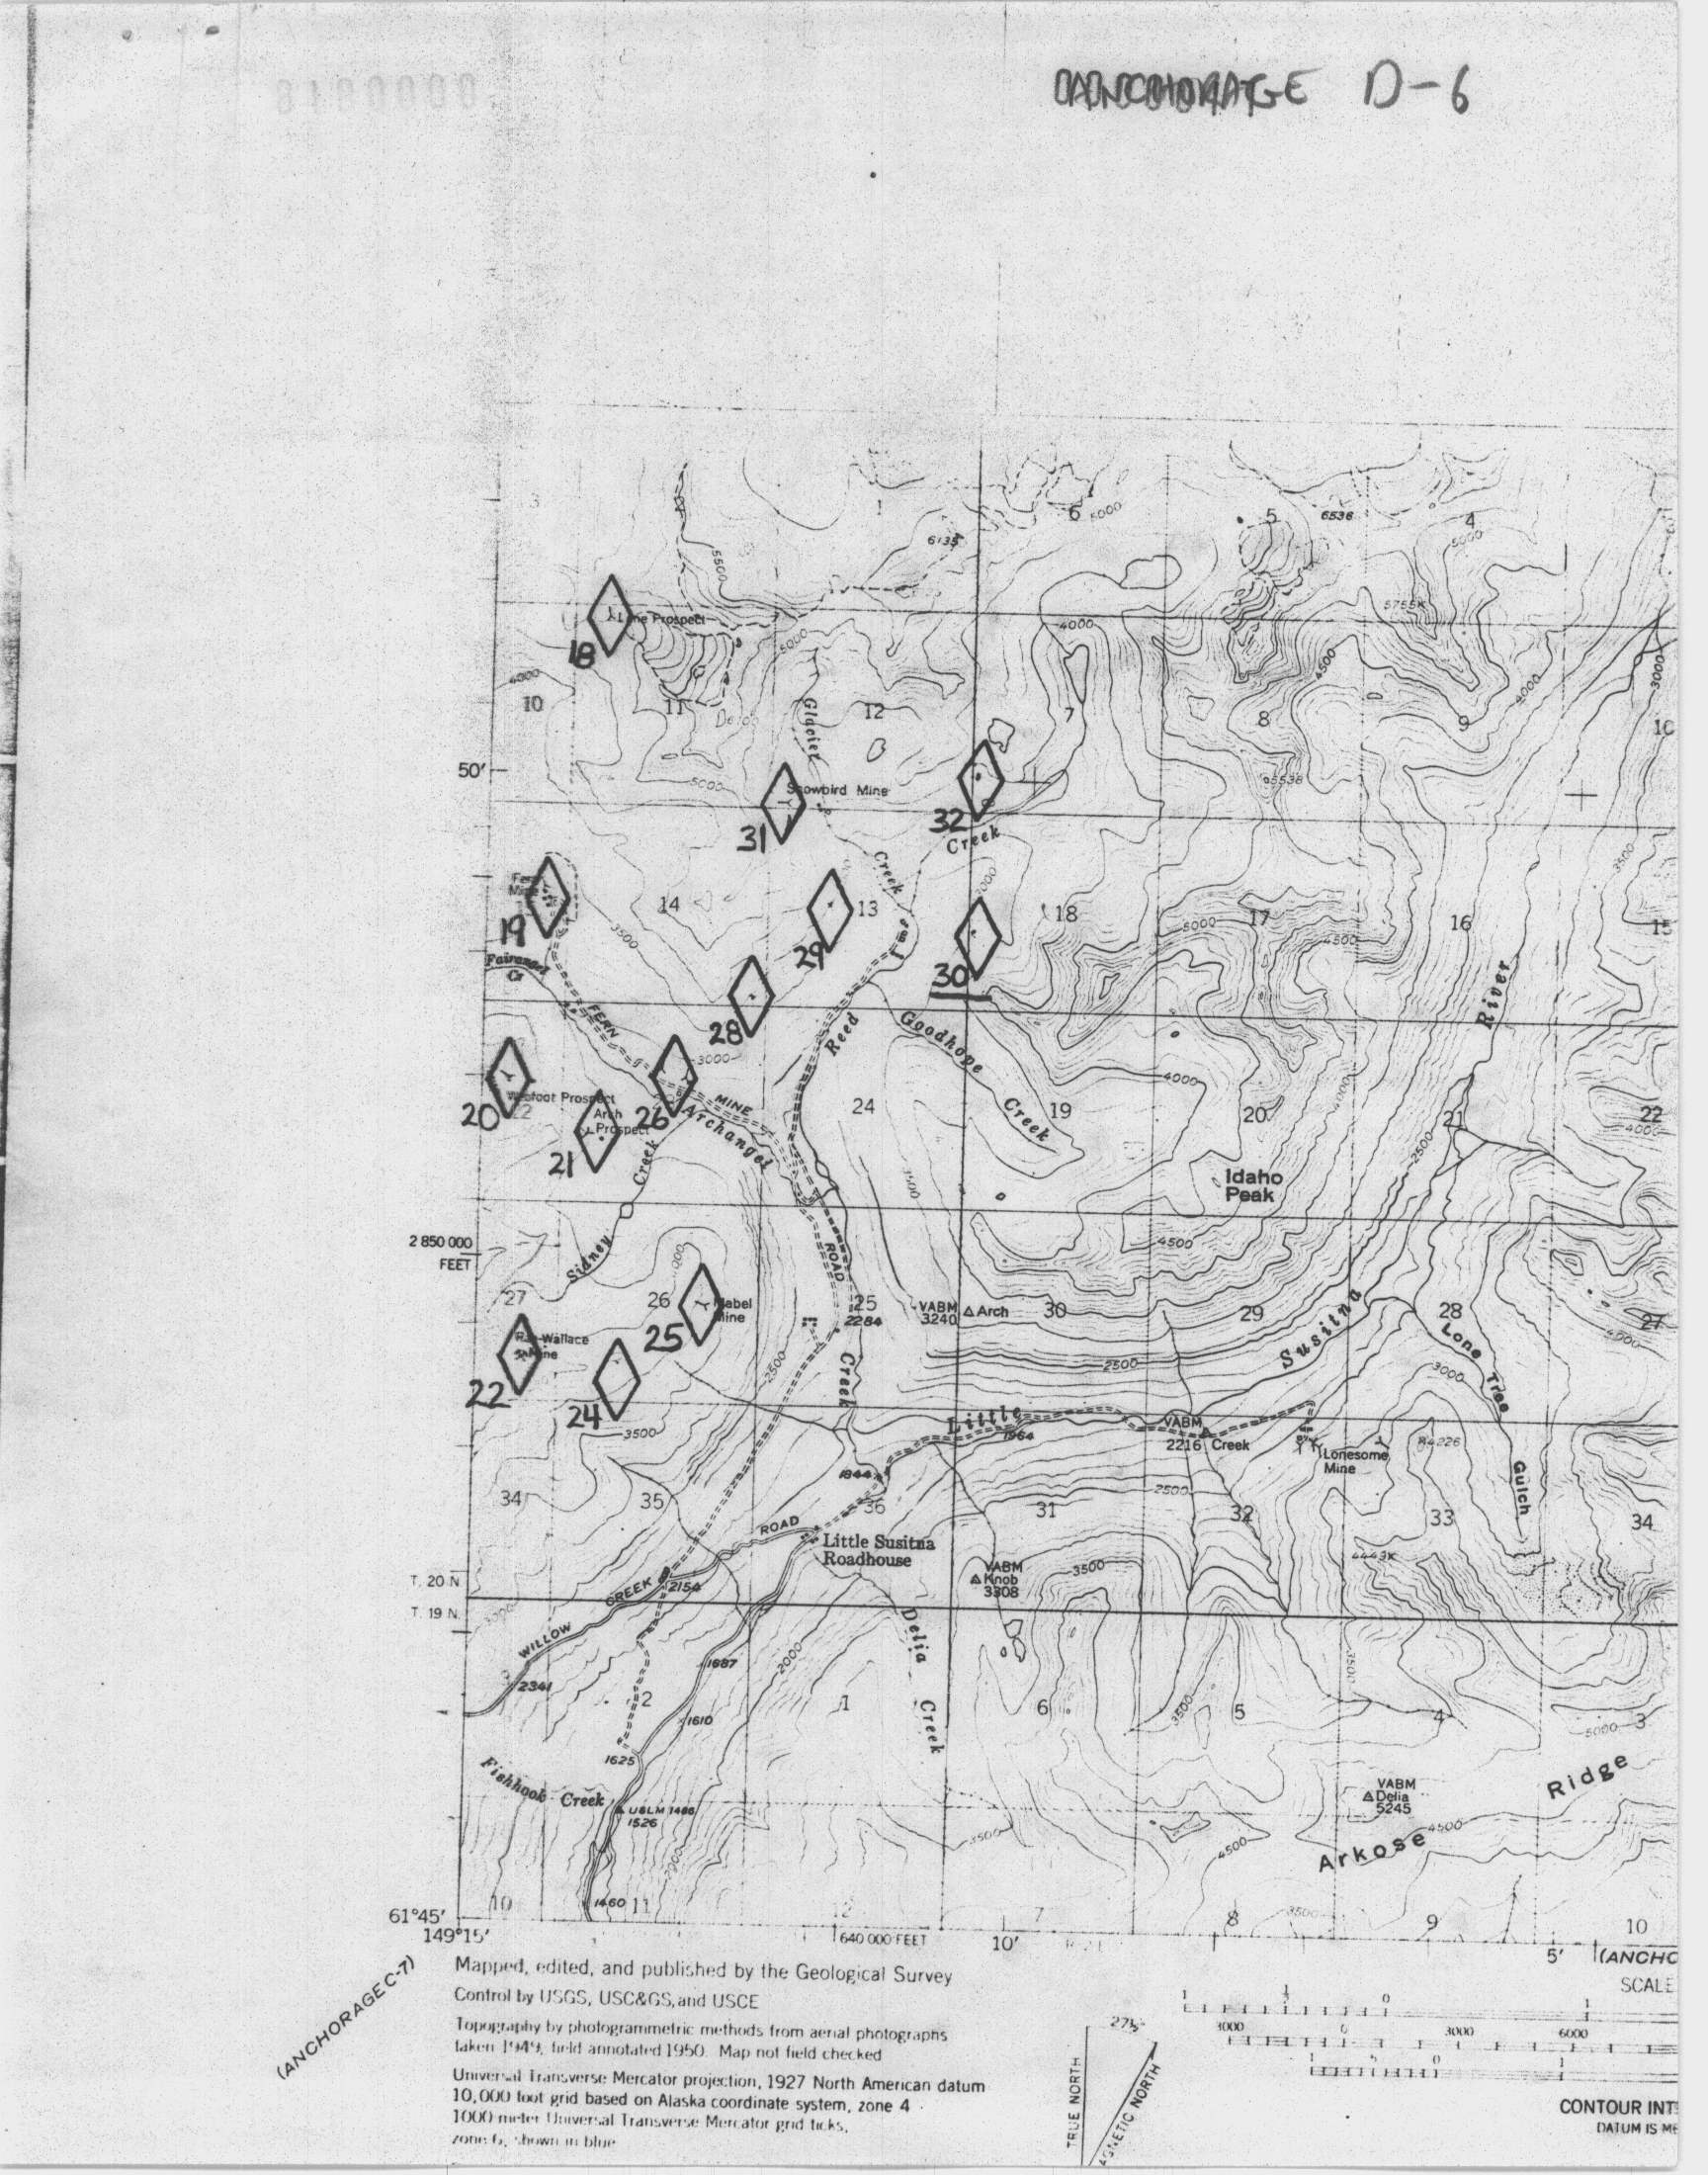 0000018
ANCHORAGE D-6
3
1
6
5000
5
6536
4
5000
6135
5500
5755X
Lane Prospect
18
5000
4000
4500
4000
3000
4000
10
11
Glacier
12
7
8
9
10
50'
5000
Snowbird Mine
5538
31
32
Creek
Creek
Fern
Mine
14
13
18
5000
17
4500
16
15
3500
19
3500
29
30
Fairangel
Cr
FERN
28
Reed
Goodhope
Creek
River
3000
4000
Webfoot Prospect
22
20
26
MINE
Archangel
Arch
Prospect
21
24
19
20
21
22
4000
2500
Creek
Idaho
Peak
3500
2 850 000
FEET
4500
Sidney
ROAD
27
26
Mabel
Mine
25
25
2284
VABM
3240
Arch
30
29
28
27
Susitna
Lone
Tree
Gulch
4000
Ray-Wallace
Mine
22
24
2500
Creek
2500
3000
3500
Little
1964
VABM
2216
Creek
Lonesome
Mine
1844
2500
34
35
36
31
32
33
34
ROAD
Little Susitna
Roadhouse
4443X
VABM
Knob
3308
3500
T. 20 N
CREEK
2154
T. 19 N.
WILLOW
Delia
Creek
2341
1687
2000
3500
2
1
6
5
4
3
1610
3500
5000
1625
Fishhook Creek
USLM 1486
1526
VABM
Delia
5245
Arkose
Ridge
3500
4500
4500
10
1460
11
12
7
8
3500
9
10
61°45'
149°15'
640 000 FEET
10'
5'
(ANCHO
(ANCHORAGE C-7)
Mapped, edited, and published by the Geological Survey
Control by USGS, USC&GS, and USCE
Topography by photogrammetric methods from aerial photographs
taken 1949, field annotated 1950. Map not field checked
Universal Transverse Mercator projection, 1927 North American datum
10,000 foot grid based on Alaska coordinate system, zone 4
1000 meter Universal Transverse Mercator grid ticks,
zone 6, shown in blue
TRUE NORTH
MAGNETIC NORTH
SCALE
1
0
1
3000
0
3000
6000
1
0
1
CONTOUR INT
DATUM IS ME